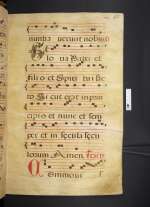 nuntia uerunt nobis
Glo
ria Patri et
filio et Spiri tui sāc
to Si cut erat in prin
cipio et nunc et sem
per et in secula secu
lorum Amen.
O